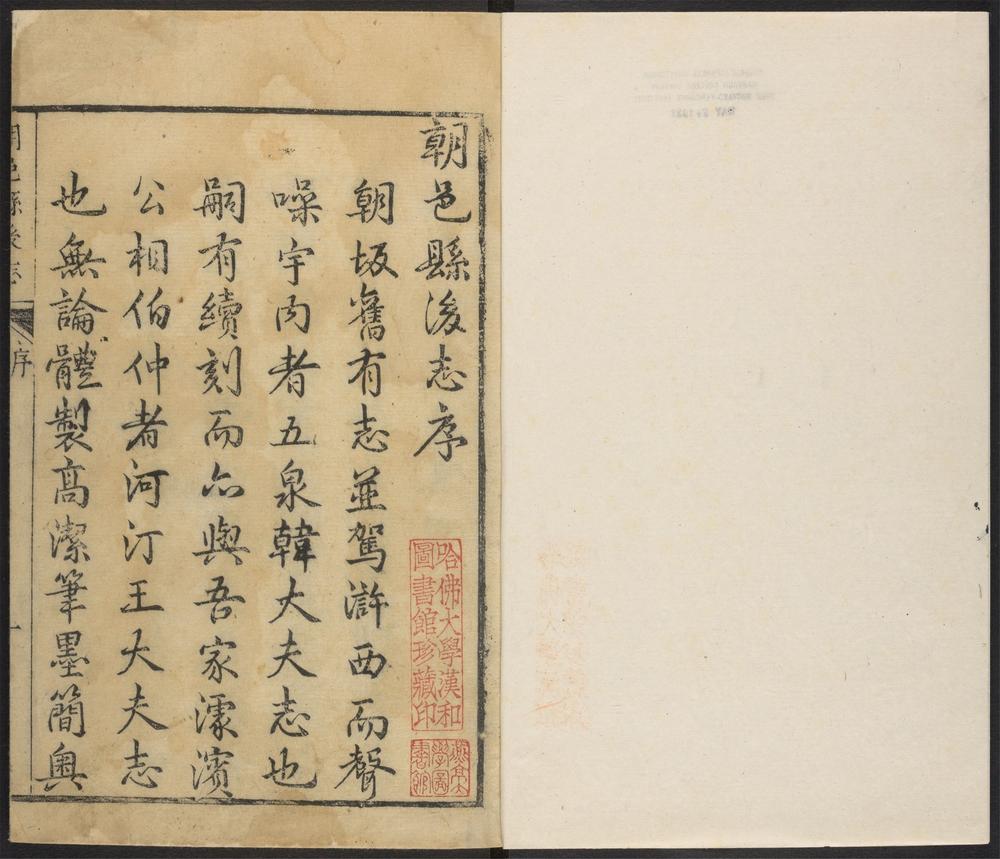 朝邑縣後志序
朝坂舊有志並駕滸西而聲
噪宇內者五泉韓大夫志也
嗣有續刻而亦與吾家濛濱
公相伯仲者河汀王大夫志
也無論體製高潔筆墨簡奧
朝邑縣後志
序
一
哈佛大學漢和
圖書館珍藏印